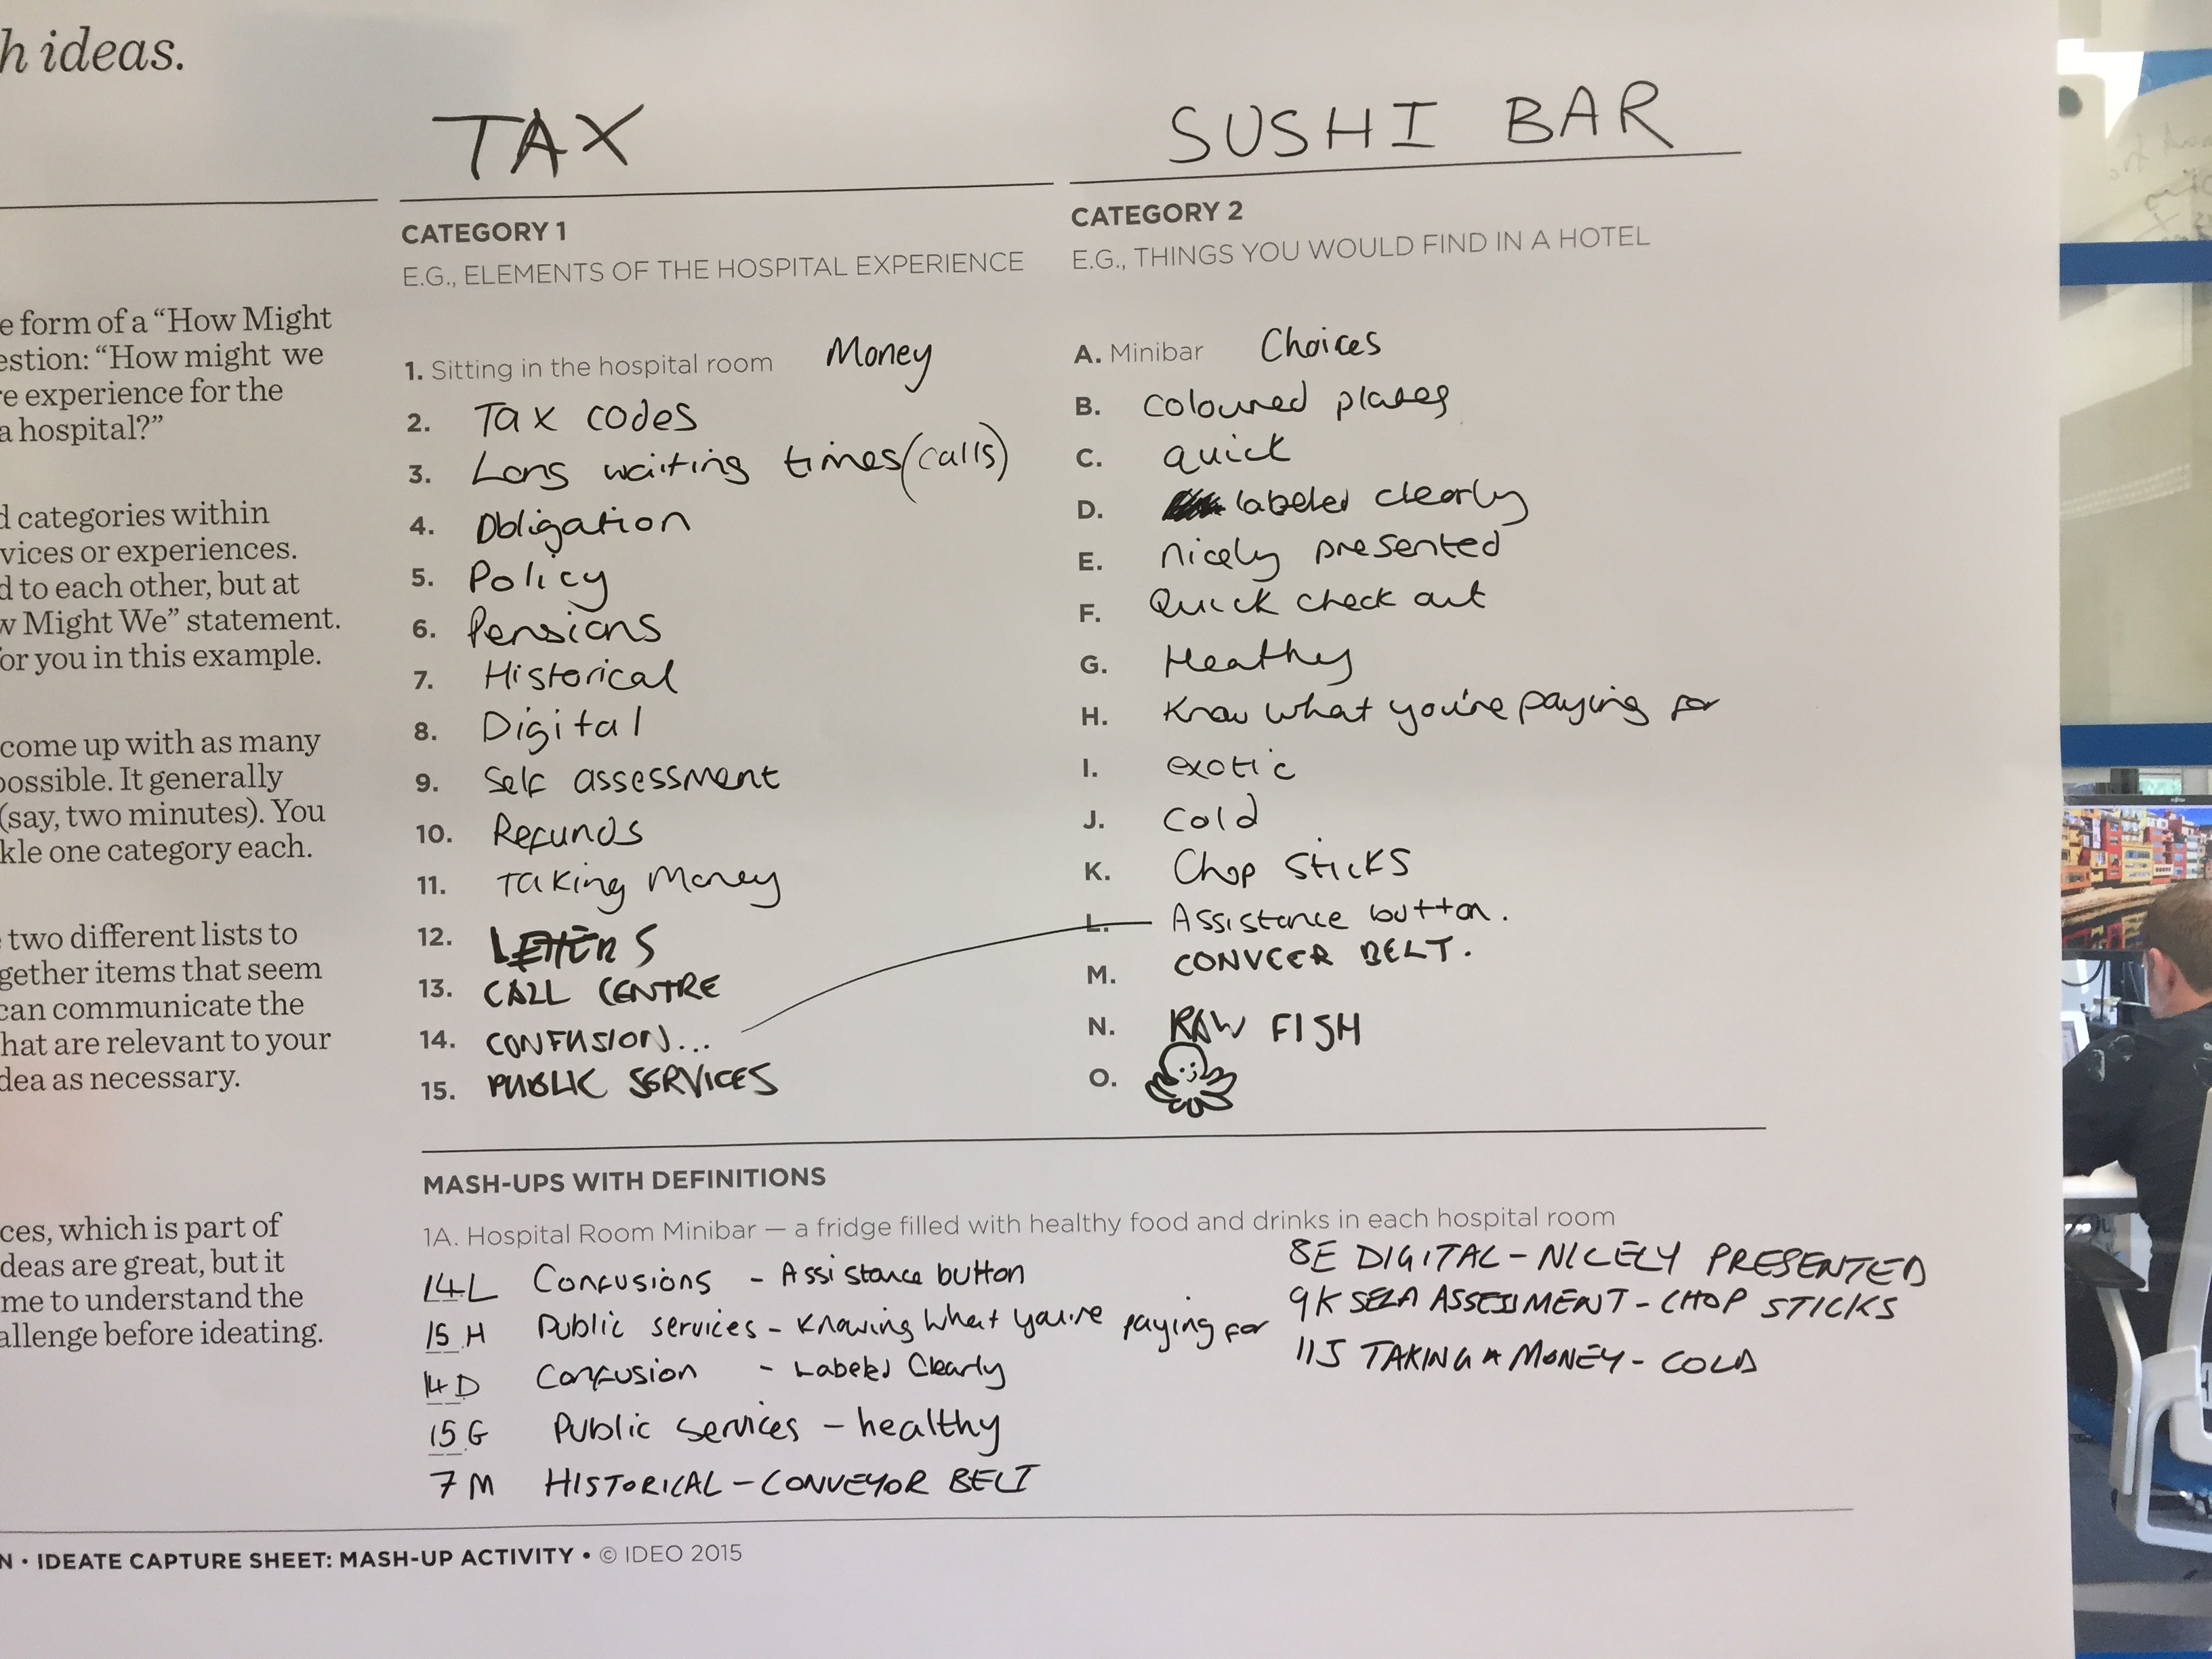 h ideas.
TAX
SUSHI BAR
e form of a “How Might
estion: “How might we
re experience for the
a hospital?”
d categories within
vices or experiences.
d to each other, but at
w Might We” statement.
for you in this example.
come up with as many
possible. It generally
(say, two minutes). You
kle one category each.
two different lists to
gether items that seem
can communicate the
hat are relevant to your
dea as necessary.
ces, which is part of
deas are great, but it
me to understand the
allenge before ideating.
CATEGORY 1
E.G., ELEMENTS OF THE HOSPITAL EXPERIENCE
1. Sitting in the hospital room Money
2. Tax codes
3. Long waiting times (calls)
4. Obligation
5. Policy
6. Pensions
7. Historical
8. Digital
9. Self assessment
10. Refunds
11. Taking Money
12. LETTERS
13. CALL CENTRE
14. CONFUSION...
15. PUBLIC SERVICES
CATEGORY 2
E.G., THINGS YOU WOULD FIND IN A HOTEL
A. Minibar Choices
B. coloured plates
C. quick
D. labeled clearly
E. nicely presented
F. Quick check out
G. Heathy
H. Know what you're paying for
I. exotic
J. Cold
K. Chop sticks
L. Assistance button.
M. CONVEER BELT.
N. RAW FISH
O.
MASH-UPS WITH DEFINITIONS
1A. Hospital Room Minibar — a fridge filled with healthy food and drinks in each hospital room
14L Confusions - Assistance button
15 H Public services - Knowing what you're paying for
14 D Confusion - Labeled Clearly
15 G Public services - healthy
7 M HISTORICAL - CONVEYOR BELT
8E DIGITAL - NICELY PRESENTED
9K SELF ASSESSMENT - CHOP STICKS
11J TAKING MONEY - COLD
N • IDEATE CAPTURE SHEET: MASH-UP ACTIVITY • © IDEO 2015